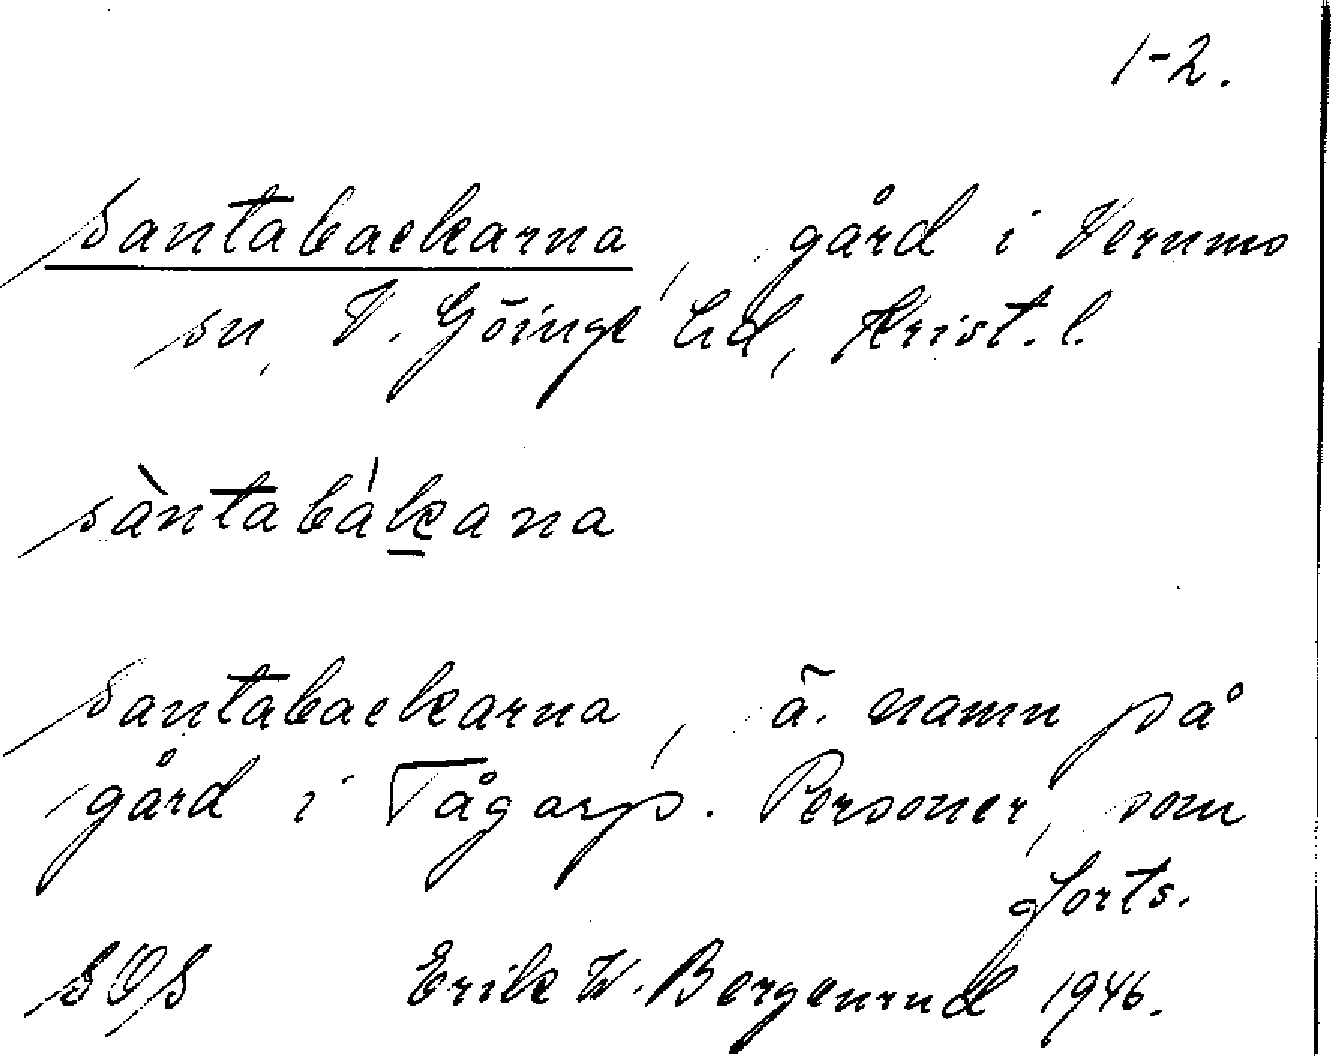 1-2.
Santabackarna, gård i Verums
sn, V. Göinge hd, Krist. l.
sàntabákana
Santabackarna, ä. namn på
gård i Tågarp. Personer, som
forts.
SOS Erik W. Bergenrud 1946.